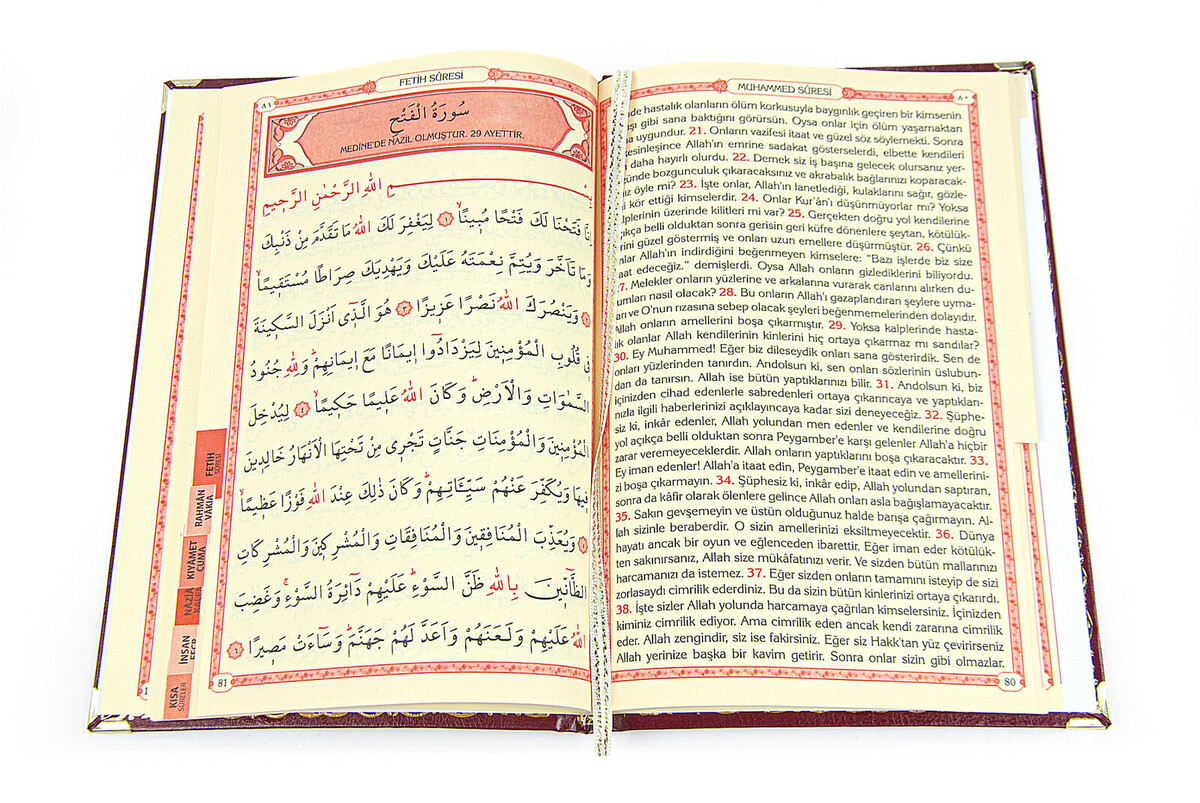 MUHAMMED SÛRESİ
٨٠
hastalık olanların ölüm korkusuyla baygınlık geçiren bir kimsenin
gibi sana baktığını görürsün. Oysa onlar için ölüm yaşamaktan
uygundur. 21. Onların vazifesi itaat ve güzel söz söylemekti. Sonra
kesinleşince Allah'ın emrine sadakat gösterselerdi, elbette kendileri
daha hayırlı olurdu. 22. Demek siz iş başına gelecek olursanız yer-
yüzünde bozgunculuk çıkaracaksınız ve akrabalık bağlarınızı koparacak-
öyle mi? 23. İşte onlar, Allah'ın lanetlediği, kulaklarını sağır, gözle-
kör ettiği kimselerdir. 24. Onlar Kur'ân'ı düşünmüyorlar mı? Yoksa
kalplerinin üzerinde kilitleri mi var? 25. Gerçekten doğru yol kendilerine
açıkça belli olduktan sonra gerisin geri küfre dönenlere şeytan, kötülük-
güzel göstermiş ve onları uzun emellere düşürmüştür. 26. Çünkü
onlar Allah'ın indirdiğini beğenmeyen kimselere: "Bazı işlerde biz size
itaat edeceğiz." demişlerdi. Oysa Allah onların gizlediklerini biliyordu.
27. Melekler onların yüzlerine ve arkalarına vurarak canlarını alırken du-
rumları nasıl olacak? 28. Bu onların Allah'ı gazaplandıran şeylere uyma-
ları ve O'nun rızasına sebep olacak şeyleri beğenmemelerinden dolayıdır.
Allah onların amellerini boşa çıkarmıştır. 29. Yoksa kalplerinde hasta-
lık olanlar Allah kendilerinin kinlerini hiç ortaya çıkarmaz mı sandılar?
30. Ey Muhammed! Eğer biz dileseydik onları sana gösterirdik. Sen de
onları yüzlerinden tanırdın. Andolsun ki, sen onları sözlerinin üslubun-
dan da tanırsın. Allah ise bütün yaptıklarınızı bilir. 31. Andolsun ki, biz
içinizden cihad edenlerle sabredenleri ortaya çıkarıncaya ve yaptıkları-
nızla ilgili haberlerinizi açıklayıncaya kadar sizi deneyeceğiz. 32. Şüphe-
siz ki, inkâr edenler, Allah yolundan men edenler ve kendilerine doğru
yol açıkça belli olduktan sonra Peygamber'e karşı gelenler Allah'a hiçbir
zarar veremeyeceklerdir. Allah onların yaptıklarını boşa çıkaracaktır. 33.
Ey iman edenler! Allah'a itaat edin, Peygamber'e itaat edin ve amellerini-
zi boşa çıkarmayın. 34. Şüphesiz ki, inkâr edip, Allah yolundan saptıran,
sonra da kâfir olarak ölenlere gelince Allah onları asla bağışlamayacaktır.
35. Sakın gevşemeyin ve üstün olduğunuz halde barışa çağırmayın. Al-
lah sizinle beraberdir. O sizin amellerinizi eksiltmeyecektir. 36. Dünya
hayatı ancak bir oyun ve eğlenceden ibarettir. Eğer iman eder kötülük-
ten sakınırsanız, Allah size mükâfatınızı verir. Ve sizden bütün mallarınızı
harcamanızı da istemez. 37. Eğer sizden onların tamamını isteyip de sizi
zorlasaydı cimrilik ederdiniz. Bu da sizin bütün kinlerinizi ortaya çıkarırdı.
38. İşte sizler Allah yolunda harcamaya çağrılan kimselersiniz. İçinizden
kiminiz cimrilik ediyor. Ama cimrilik eden ancak kendi zararına cimrilik
eder. Allah zengindir, siz ise fakirsiniz. Eğer siz Hakk'tan yüz çevirirseniz
Allah yerinize başka bir kavim getirir. Sonra onlar sizin gibi olmazlar.
80
FETİH SÛRESİ
٨١
سُورَةُ الْفَتْحِ
MEDİNE'DE NAZİL OLMUŞTUR. 29 AYETTİR.
بِسْمِ اللهِ الرَّحْمٰنِ الرَّحِيمِ
اِنَّا فَتَحْنَا لَكَ فَتْحًا مُبِينًاۙ ﴿١﴾ لِيَغْفِرَ لَكَ اللهُ مَا تَقَدَّمَ مِنْ ذَنْبِكَ
وَمَا تَاَخَّرَ وَيُتِمَّ نِعْمَتَهُ عَلَيْكَ وَيَهْدِيَكَ صِرَاطًا مُسْتَقِيمًاۙ
﴿٢﴾ وَيَنْصُرَكَ اللهُ نَصْرًا عَزِيزًا ﴿٣﴾ هُوَ الَّذِٓي اَنْزَلَ السَّكِينَةَ
فِي قُلُوبِ الْمُؤْمِنِينَ لِيَزْدَادُٓوا اِيمَانًا مَعَ اِيمَانِهِمْۜ وَلِلّٰهِ جُنُودُ
السَّمٰوَاتِ وَالْاَرْضِۜ وَكَانَ اللهُ عَلِيمًا حَكِيمًاۙ ﴿٤﴾ لِيُدْخِلَ
الْمُؤْمِنِينَ وَالْمُؤْمِنَاتِ جَنَّاتٍ تَجْرِي مِنْ تَحْتِهَا الْاَنْهَارُ خَالِدِينَ
فِيهَا وَيُكَفِّرَ عَنْهُمْ سَيِّـَٔاتِهِمْۜ وَكَانَ ذٰلِكَ عِنْدَ اللهِ فَوْزًا عَظِيمًاۙ
﴿٥﴾ وَيُعَذِّبَ الْمُنَافِقِينَ وَالْمُنَافِقَاتِ وَالْمُشْرِكِينَ وَالْمُشْرِكَاتِ
الظَّٓانِّينَ بِاللهِ ظَنَّ السَّوْءِۜ عَلَيْهِمْ دَٓائِرَةُ السَّوْءِۚ وَغَضِبَ
اللهُ عَلَيْهِمْ وَلَعَنَهُمْ وَاَعَدَّ لَهُمْ جَهَنَّمَۜ وَسَٓاءَتْ مَصِيرًا ﴿٦﴾
81
FETİH
SÛRESİ
RAHMÂN
VÂKIA
KIYÂMET
CUMA
NÂZİÂ
İNSAN
KISA
SÛRELER